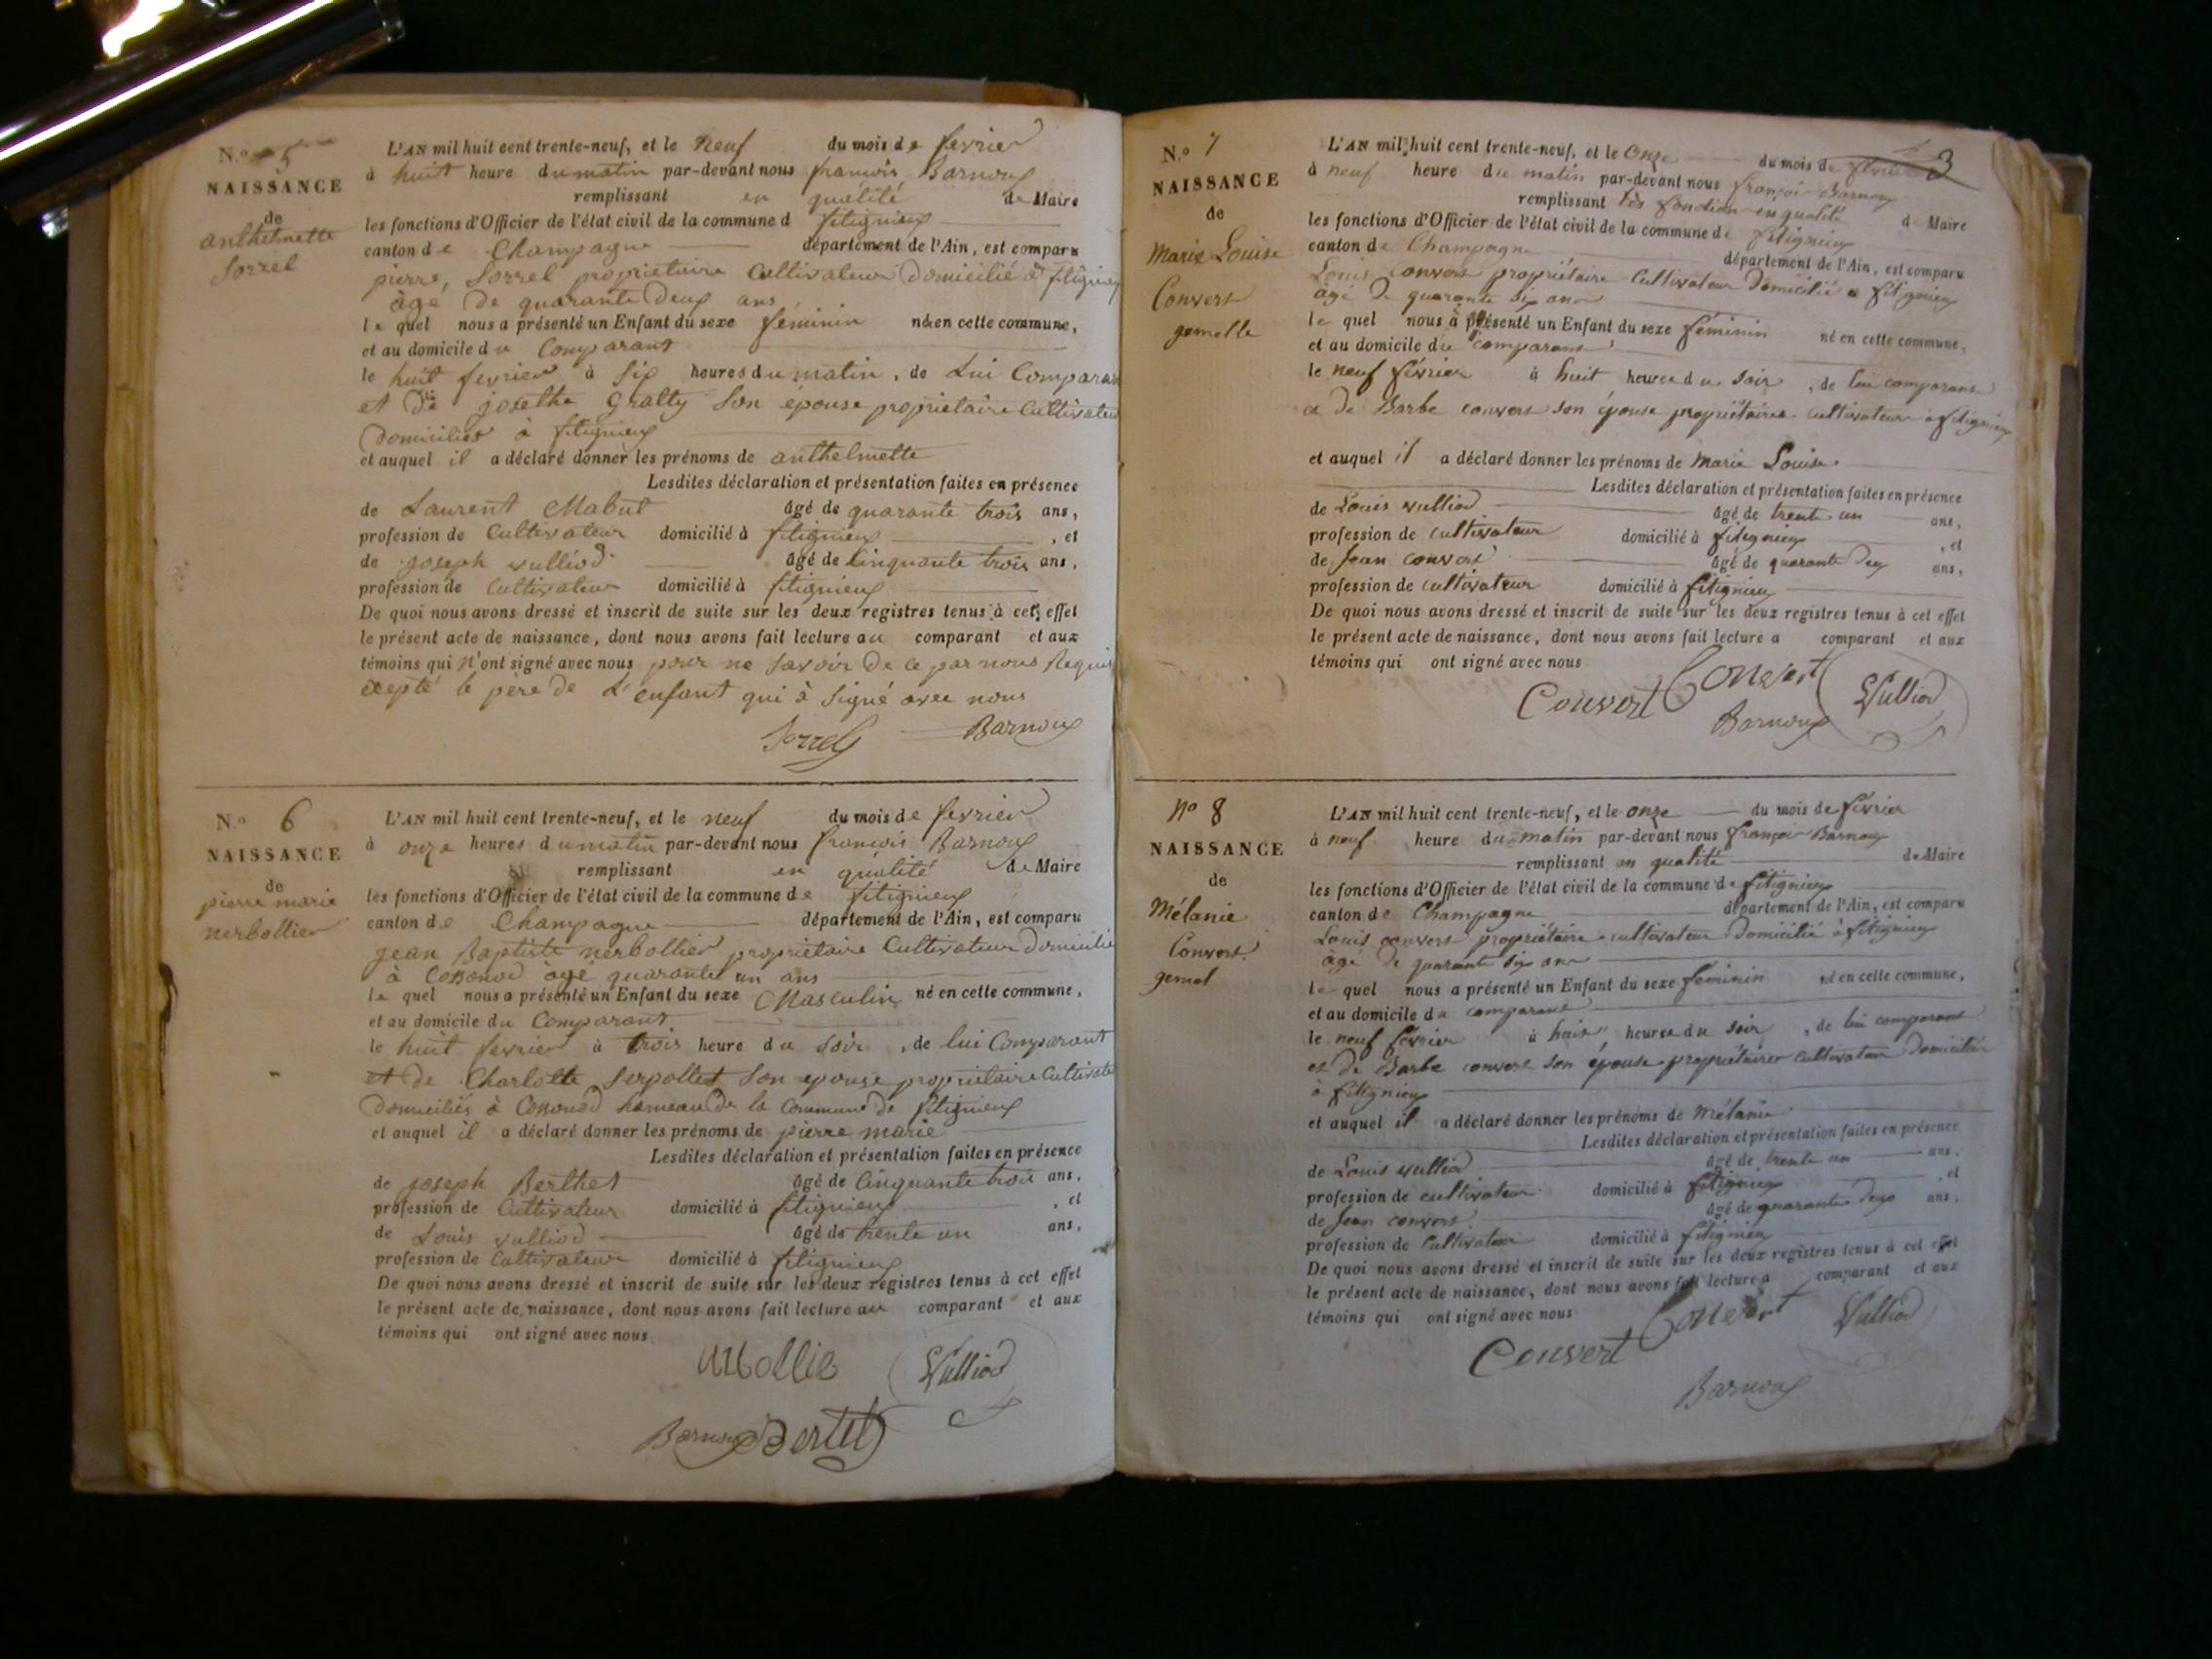 N.o 5
NAISSANCE
de
anthelmette
Sorrel
L'AN mil huit cent trente-neuf, et le neuf du mois de fevrier
à huit heure du matin par-devant nous françois Barnoux
remplissant en quálité de Maire
les fonctions d'Officier de l'état civil de la commune d fitignieux
canton de Champagne département de l'Ain, est comparu
pierre, Sorrel proprietaire Cultivateur Domicilié à fitignieux
âgé De quarante Deux ans
le quel nous a présenté un Enfant du sexe féminin née en cette commune,
et au domicile du Comparant
le huit fevrier à Six heures du matin, de Lui Comparant
et De josethe Gralty Son épouse proprietaire Cultivateur
Domicilies à fitignieux
et auquel il a déclaré donner les prénoms de anthelmette
Lesdites déclaration et présentation faites en présence
de Laurent Mabut âgé de quarante trois ans,
profession de Cultivateur domicilié à fitignieux, et
de joseph vulliod âgé de Cinquante trois ans,
profession de Cultivateur domicilié à fitignieux
De quoi nous avons dressé et inscrit de suite sur les deux registres tenus à cet effet
le présent acte de naissance, dont nous avons fait lecture au comparant et aux
témoins qui n'ont signé avec nous pour ne Savoir De ce par nous Requis
éxepté le père De L'enfant qui à Signé avec nous
Sorrel Barnoux
N.o 6
NAISSANCE
de
pierre marie
nerbollier
L'AN mil huit cent trente-neuf, et le neuf du mois de fevrier
à onze heures du matin par-devant nous françois Barnoux
remplissant en quálité de Maire
les fonctions d'Officier de l'état civil de la commune de fitignieux
canton de Champagne département de l'Ain, est comparu
jean Baptiste nerbollier proprietaire Cultivateur Domicilié
à Cossonod âgé quarante un ans
le quel nous a présenté un Enfant du sexe Masculin né en cette commune,
et au domicile du Comparant
le huit fevrier à trois heure du Soir, de lui Comparant
et de Charlotte Serpollet Son epouse proprietaire Cultivate
Domiciliés à Cossonod hameau De la Commune De fitignieux
et auquel il a déclaré donner les prénoms de pierre marie
Lesdites déclaration et présentation faites en présence
de joseph Berthet âgé de Cinquante trois ans,
profession de Cultivateur domicilié à fitignieux, et
de Louis vulliod âgé de trente un ans,
profession de Cultivateur domicilié à fitignieux
De quoi nous avons dressé et inscrit de suite sur les deux registres tenus à cet effet
le présent acte de naissance, dont nous avons fait lecture au comparant et aux
témoins qui ont signé avec nous
Vulliod
Barnoux Bertet
3
N.o 7
NAISSANCE
de
Marie Louise
Convert
gemelle
L'AN mil huit cent trente-neuf, et le Onze du mois de février
à neuf heure du matin par-devant nous françois Barnoux
remplissant les fonction en qualité de Maire
les fonctions d'Officier de l'état civil de la commune de fitignieux
canton de Champagne département de l'Ain, est comparu
Louis convers propriétaire Cultivateur Domicilié a fitignieux
âgé De quarante six ans
le quel nous à présenté un Enfant du sexe féminin né en cette commune,
et au domicile du comparant
le neuf février à huit heures du soir, de lui comparant
et De Barbe convers son épouse propriétaires cultivateur à fitignieux
et auquel il a déclaré donner les prénoms de Marie Louise
Lesdites déclaration et présentation faites en présence
de Louis vulliod âgé de trente un ans,
profession de cultivateur domicilié à fitignieux, et
de Jean convert âgé de quarante deux ans,
profession de cultivateur domicilié à fitignieux
De quoi nous avons dressé et inscrit de suite sur les deux registres tenus à cet effet
le présent acte de naissance, dont nous avons fait lecture a comparant et aux
témoins qui ont signé avec nous
Convert Convert Vulliod
Barnoux
No 8
NAISSANCE
de
Mélanie
Convert
gemel
L'AN mil huit cent trente-neuf, et le onze du mois de février
à neuf heure du matin par-devant nous françois Barnoux
remplissant en qualité de Maire
les fonctions d'Officier de l'état civil de la commune de fitignieux
canton de Champagne département de l'Ain, est comparu
Louis convers propriétaire cultivateur Domicilié à fitignieux
âgé De quarante six ans
le quel nous a présenté un Enfant du sexe féminin né en cette commune,
et au domicile du comparant
le neuf février à huit heures du soir, de lui comparant
et De Barbe convers son épouse propriétaires cultivateur Domiciliés
à fitignieux
et auquel il a déclaré donner les prénoms de Mélanie
Lesdites déclaration et présentation faites en présence
de Louis vulliod âgé de trente un ans,
profession de cultivateur domicilié à fitignieux, et
de Jean convers âgé de quarante deux ans,
profession de Cultivateur domicilié à fitignieux
De quoi nous avons dressé et inscrit de suite sur les deux registres tenus à cet effet
le présent acte de naissance, dont nous avons fait lecture a comparant et aux
témoins qui ont signé avec nous
Convert Convert Vulliod
Barnoux